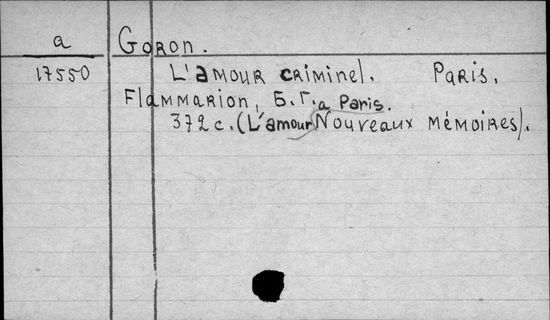 a
Goron.
17550
L'amour criminel. Paris,
Flammarion, Б.Г.
a Paris.
372 с. (L'amour Nouveaux mémoires).